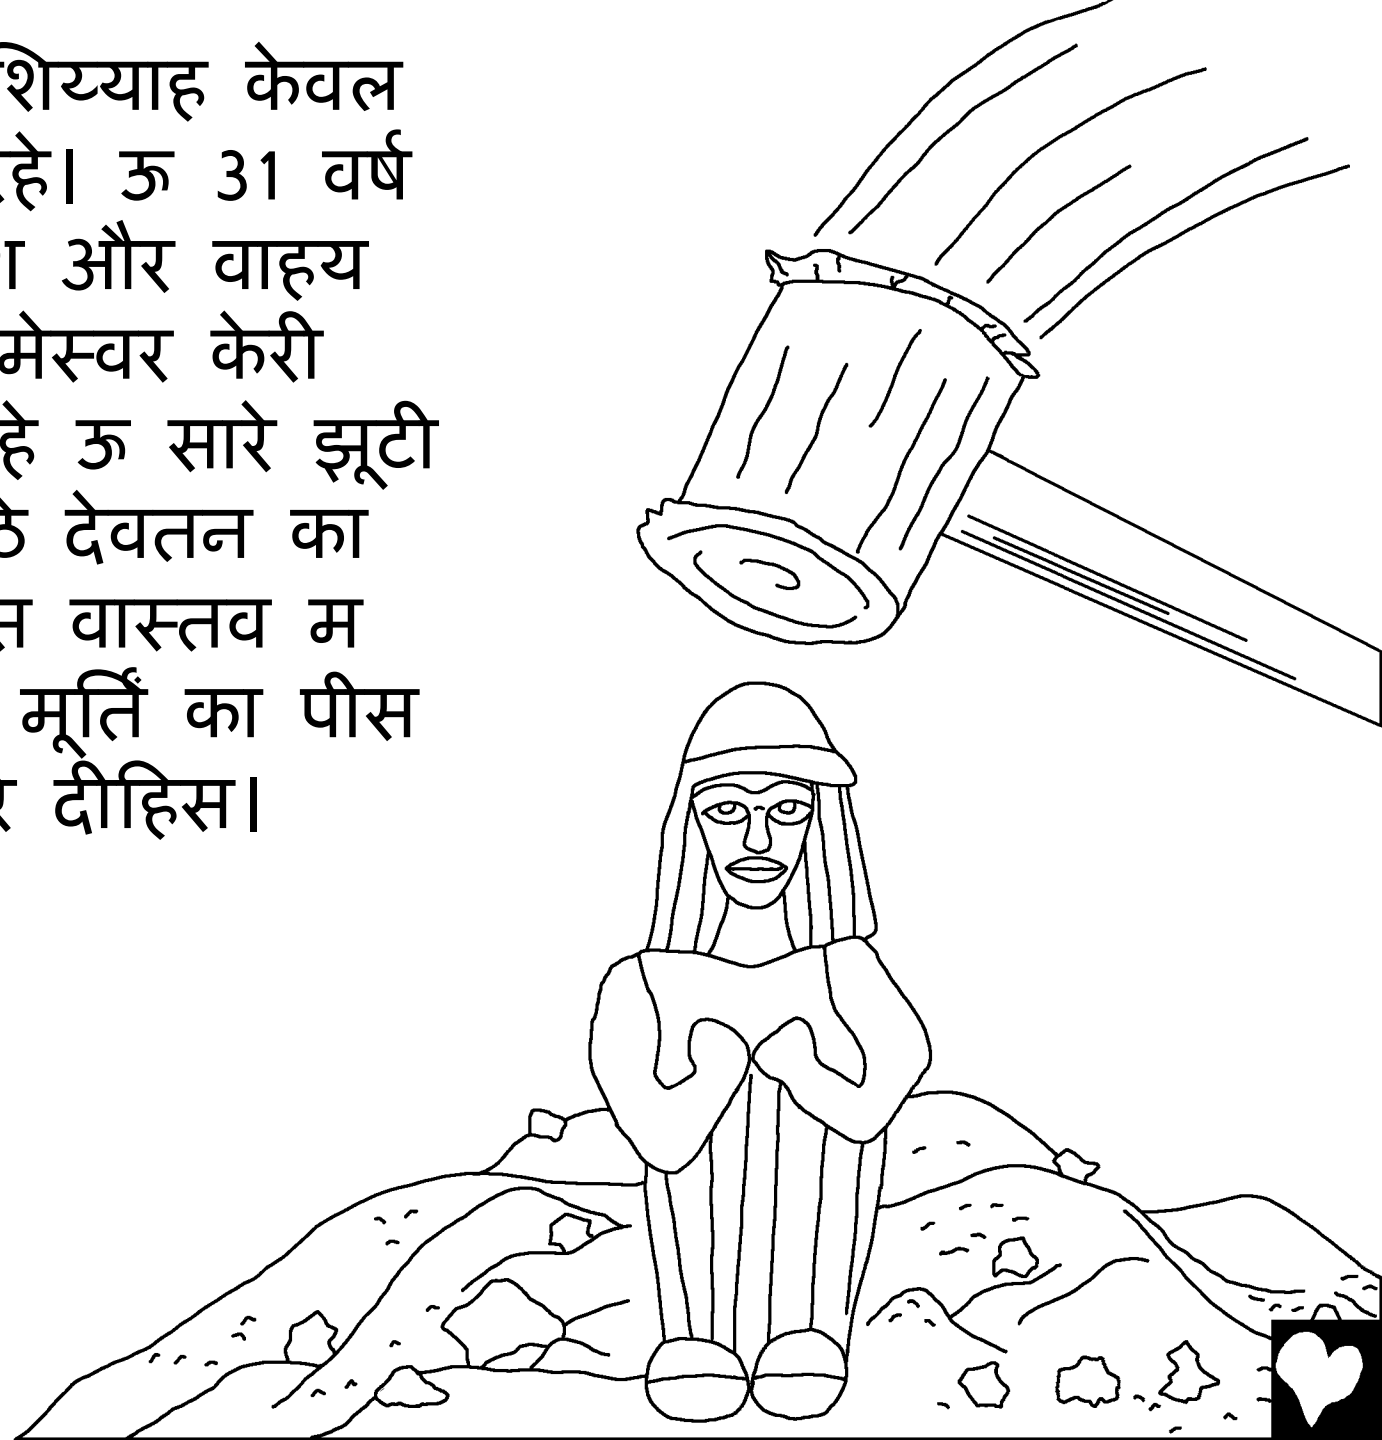 शिय्याह केवल
रहे। ऊ 31 वर्ष
और वाहय
मेस्वर केरी
हे ऊ सारे झूटी
ठे देवतन का
स वास्तव म
मूर्तिं का पीस
दीहिस।